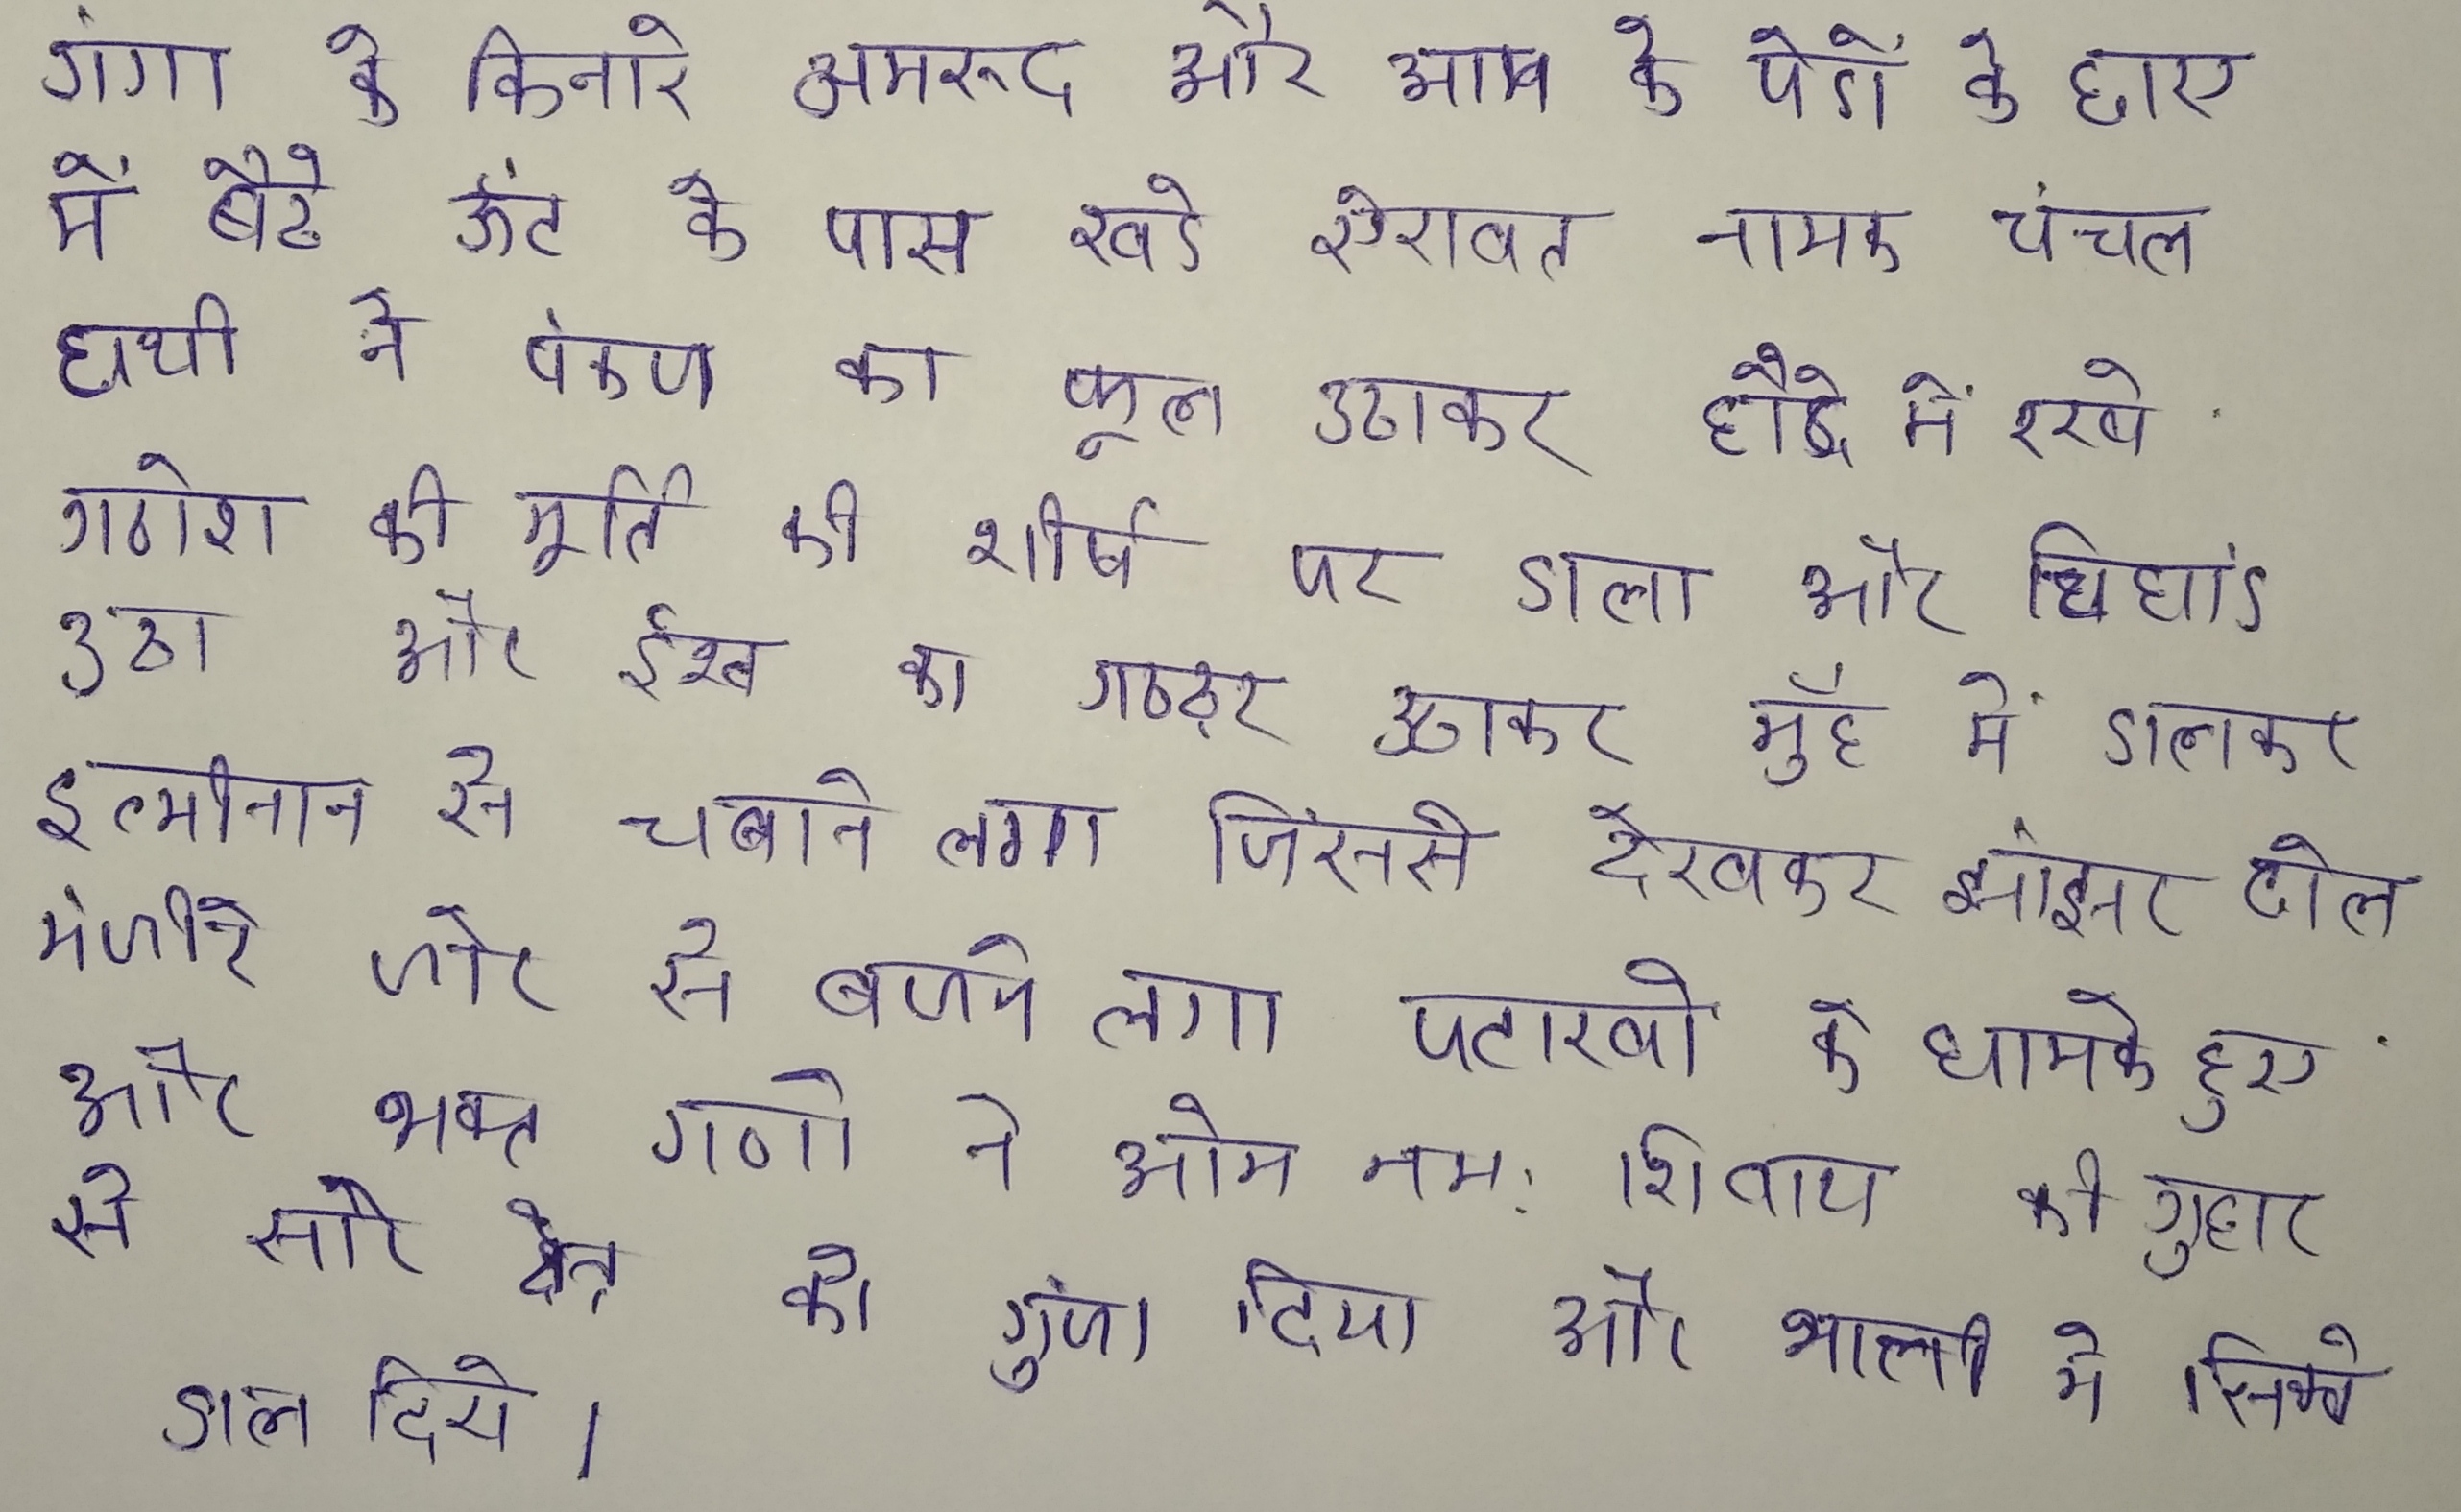 गंगा के किनारे अमरूद और आम के पेडों के छाए
में बैठे ऊंट के पास खडे ऐरावत नामक चंचल
हाथी ने पंकज का फूल उठाकर हौदे में रखे
गणेश की मूर्ति की शीर्ष पर डाला और चिघांड
उठा और ईख का गठ्ठर उठाकर मुँह में डालकर
इत्मीनान से चबाने लगा जिससे देखकर झांझर ढोल
मंजीरे जोर से बजने लगा पटाखो के धामके हुए
और भक्त गणो ने ओम नमः शिवाय की गुहार
से सारे क्षेत्र को गुंजा दिया और थाली में सिक्के
डाल दिये।